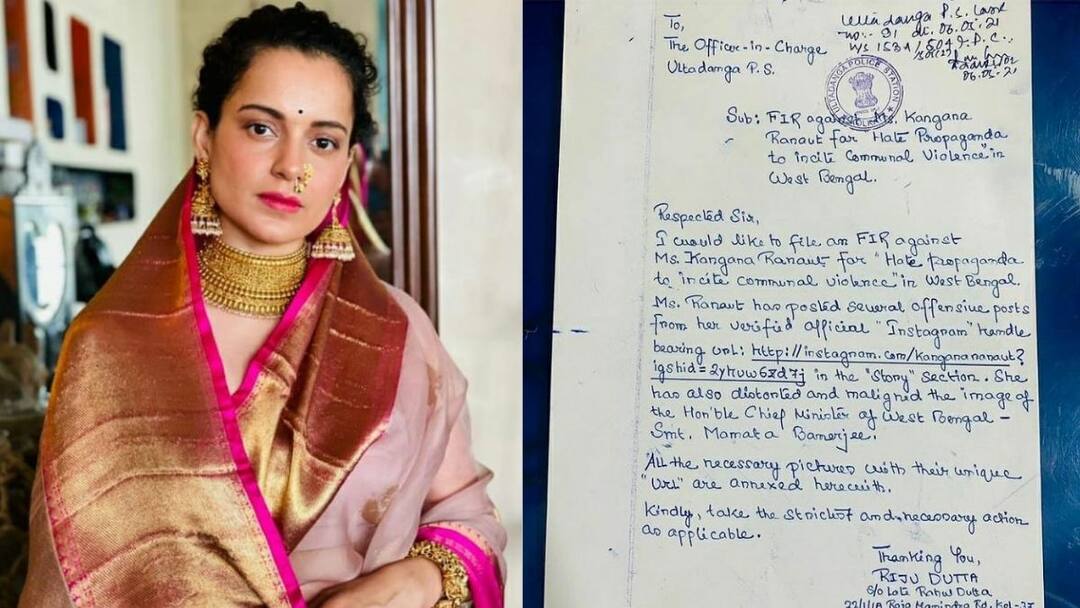 To,
The Officer-in-Charge
Ultadanga P.S.
Ultadanga P.S. Case
no:- 91 dt. 06.05.21
u/s 153A/504
06.05.21
ULTADANGA POLICE STATION
KOLKATA
Sub: FIR against Ms. Kangana
Ranaut for "Hate Propaganda
to incite Communal Violence" in
West Bengal.
Respected Sir,
I would like to file an FIR against
Ms. Kangana Ranaut for "Hate propaganda
to incite communal violence" in West Bengal.
Ms. Ranaut has posted several offensive posts
from her verified official "Instagram" handle
bearing URL: http://instagram.com/kangananaut?
igshid= in the "Story" section. She
has also distorted and maligned the image of
the Hon'ble Chief Minister of West Bengal –
Smt. Mamata Banerjee.
"All the necessary pictures with their unique
"URL" are annexed herewith.
Kindly, take the strictest and necessary action
as applicable.
Thanking You,
RIJU DUTTA
S/O Late Rahul Dutta
Raja Manindra Rd, Kol-37